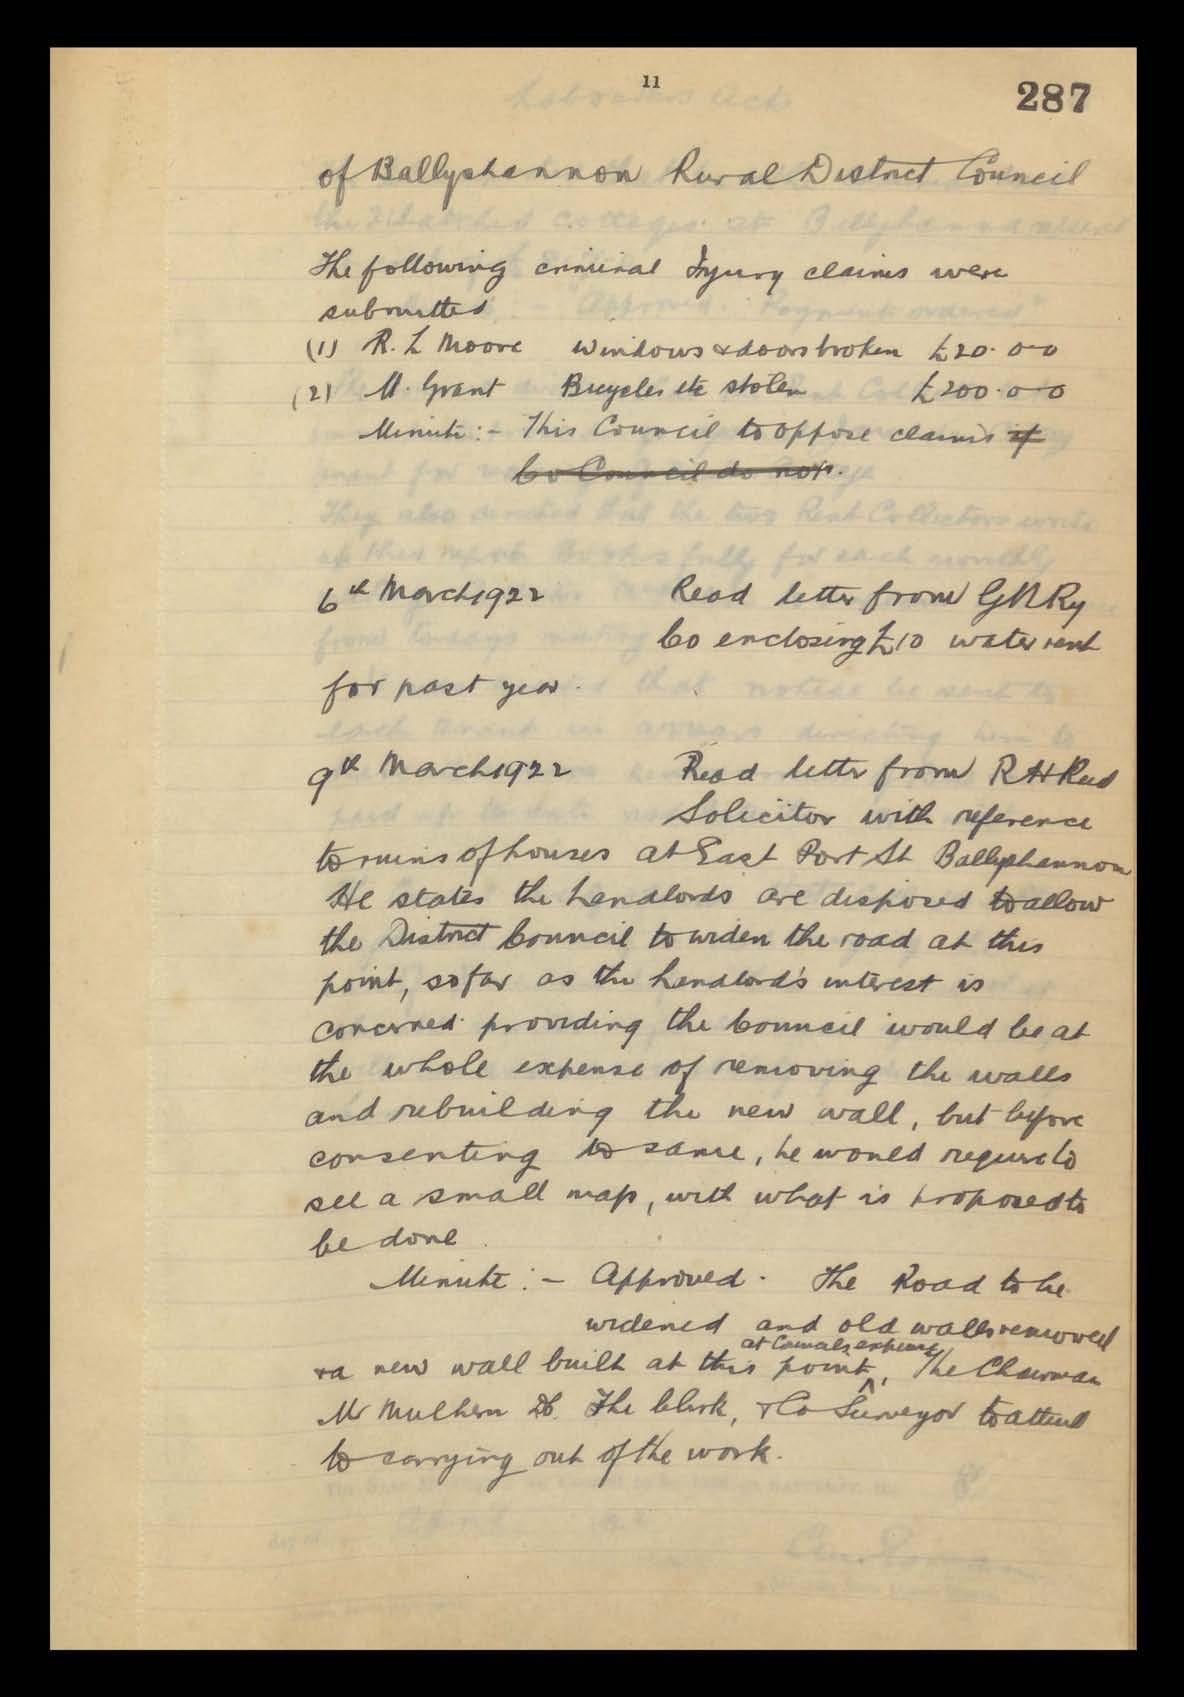 11
287
of Ballyshannon Rural District Council
The following criminal Injury claims were
submitted
(1) R. L Moore windows & doors broken £20.0-0
(2) M. Grant Bicycles etc stolen £200.0-0
Minute:- This Council to oppose claims if
Co Council do not.
6th March 1922 Read letter from GNRy
Co enclosing £10 water rent
for past year.
9th March 1922 Read letter from R H Reid
Solicitor with reference
to ruins of houses at East Port St Ballyshannon
He states the Landlords are disposed to allow
the District Council to widen the road at this
point, so far as the Landlord's interest is
concerned providing the Council would be at
the whole expense of removing the walls
and rebuilding the new wall, but before
consenting to same, he would require to
see a small map, with what is proposed to
be done.
Minute:- Approved. The Road to be
widened and old walls removed
at Council's expense
& a new wall built at this point, The Chairman
Mr Mulhern The Clerk, & Co Surveyor to attend
to carrying out of the work.